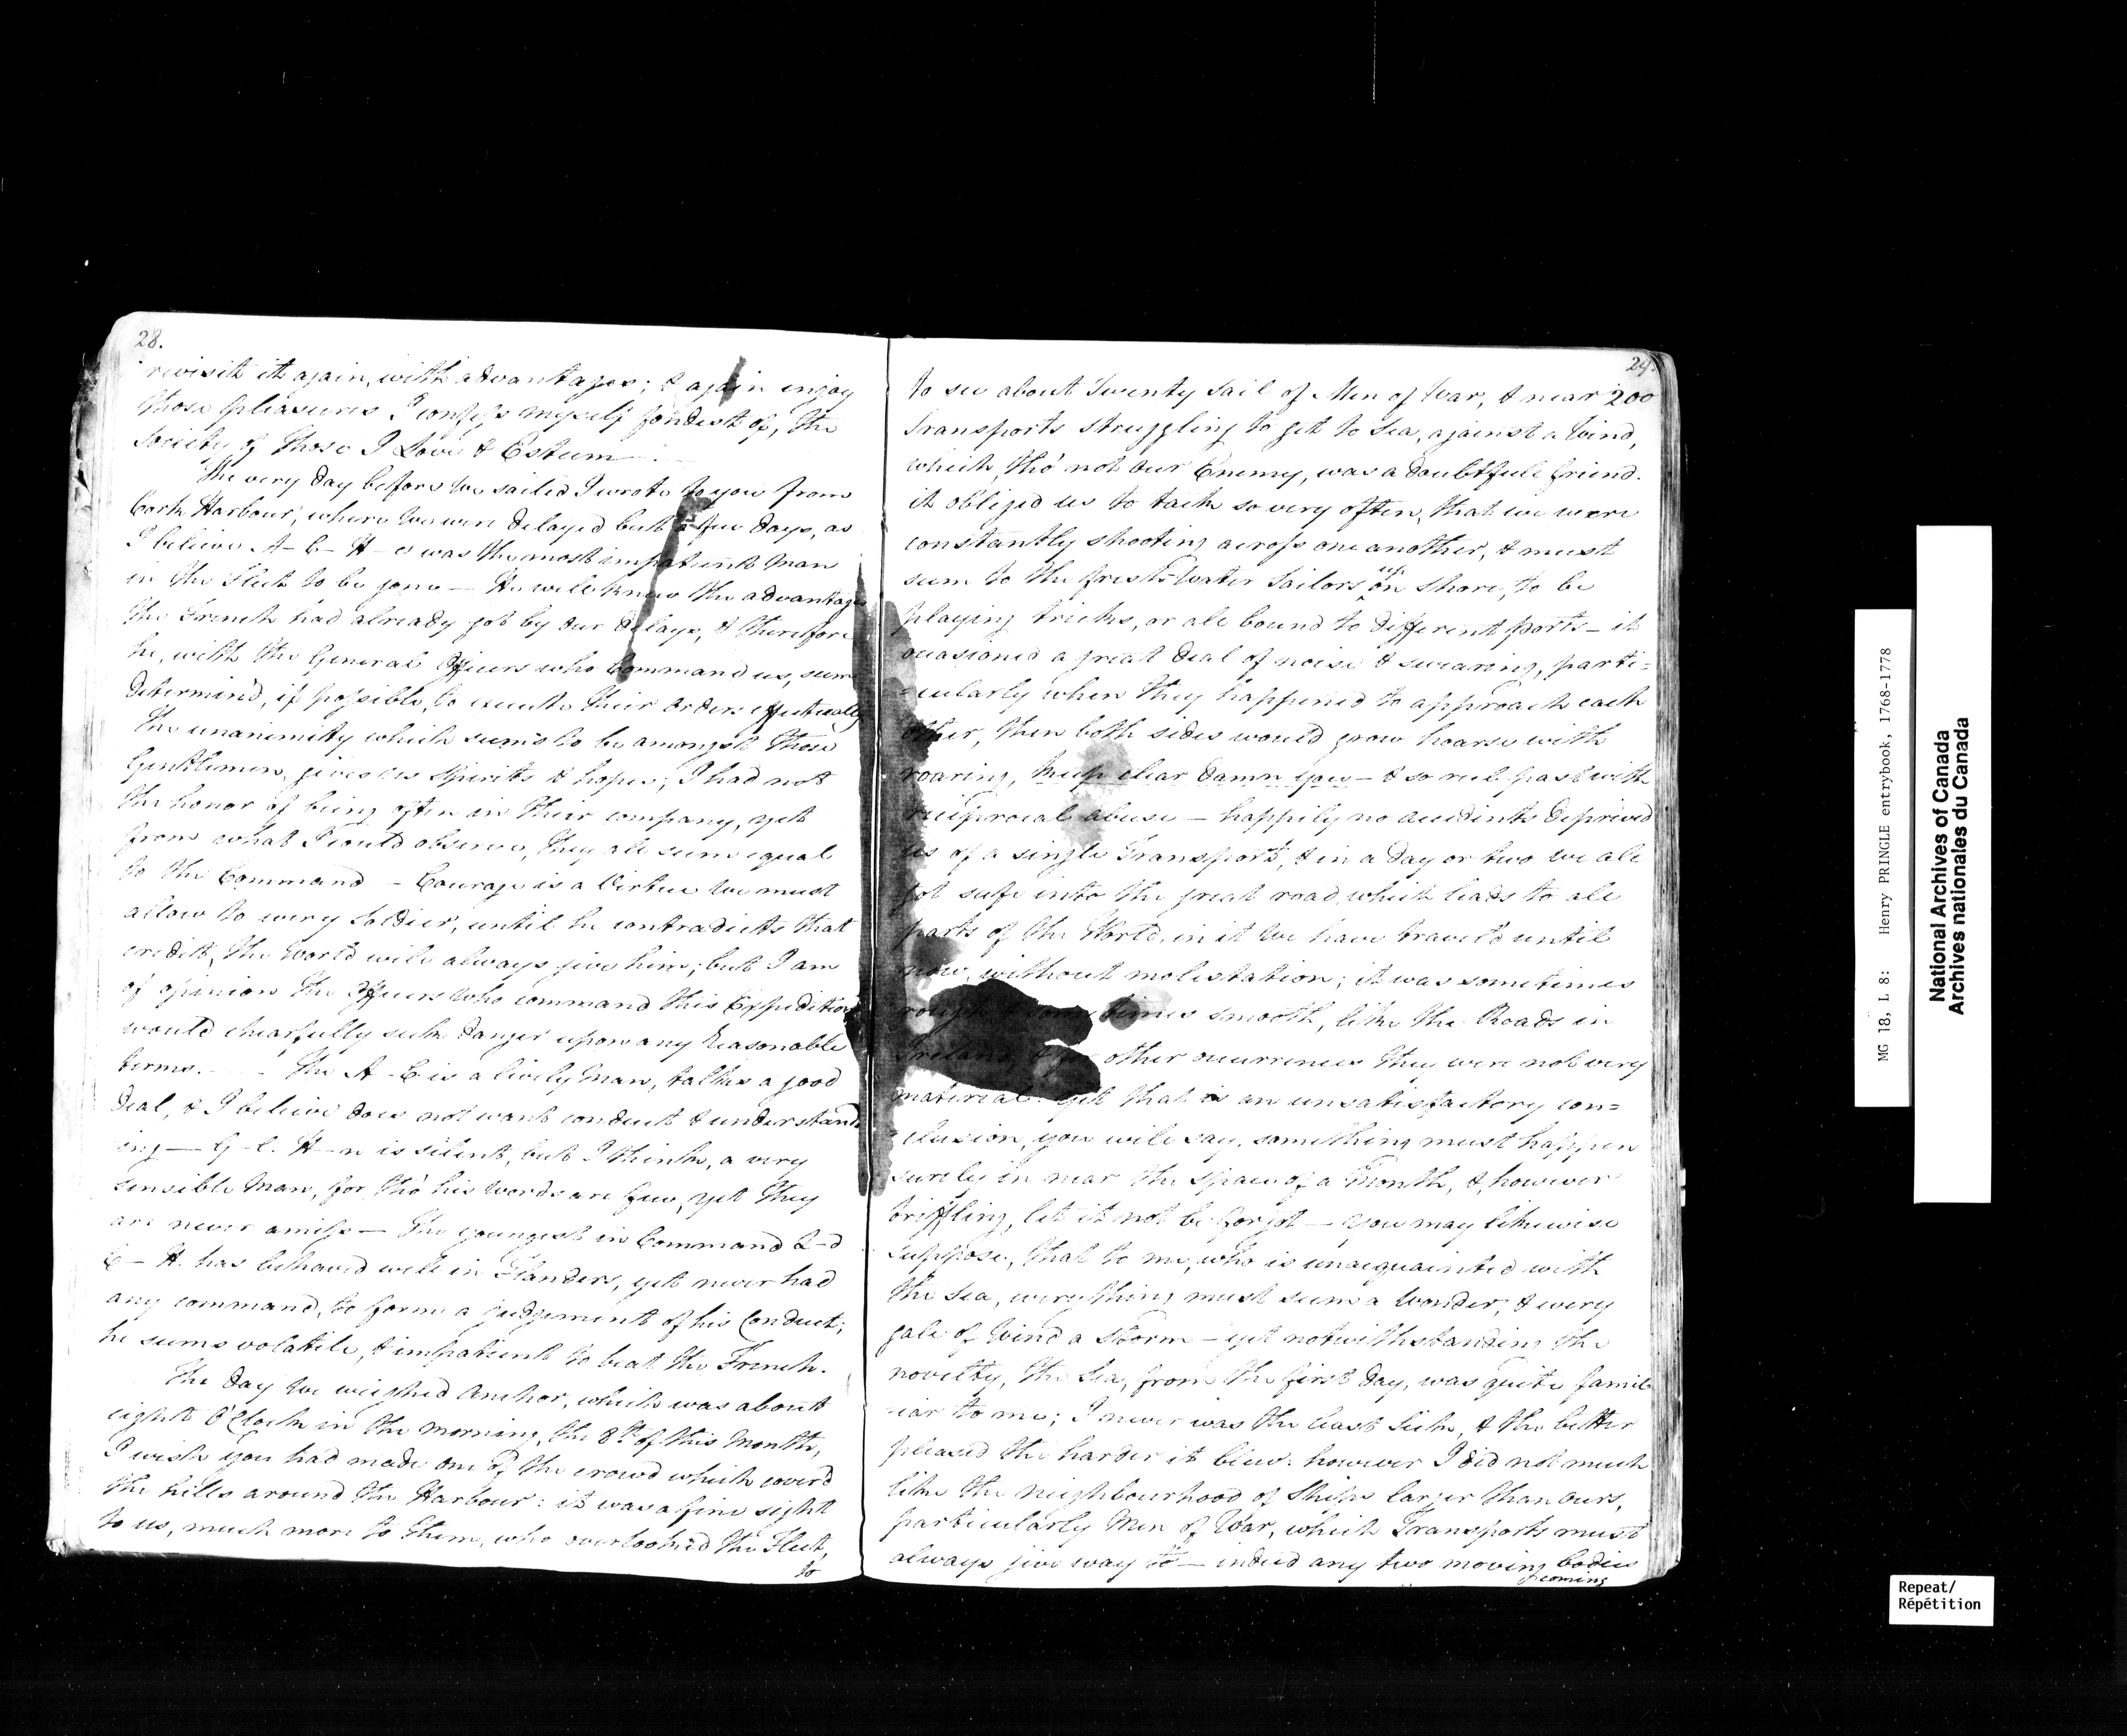 28.
revisit it again, with advantages; & again enjoy
those pleasures I confess myself fondest of, the
Society of those I Love & Esteem
The very day before we sailed I wrote to you from
Cork Harbour, where we were delayed but a few days, as
I believe A- C- H-s was the most impatient Man
in the Fleet to be gone — He well knew the advantages
the French had already got by our delays, & therefore
he, with the General Officers who Command us, seem
determin'd, if possible, to execute their orders effectually
The unanimity which seems to be amongst those
Gentlemen, gives us Spirits & hopes; I had not
the honor of being often in their company, yet
from what I could observe, they all seem equal
to the Command - Courage is a Virtue we must
allow to every Soldier, until he contradicts that
credit, the World will always give him; but I am
of opinion the Officers who command this Expedition
would chearfully seek danger upon any Reasonable
terms. - - The A - C is a lively Man, talks a good
deal, & I believe does not want conduct & understand
ing — G - l. H - n is silent, but I think, a very
sensible Man, for tho' his words are few, yet they
are never amiss — The youngest in Command L-d
H. has behaved well in Flanders, yet never had
any command, to form a judgement of his Conduct;
he seems volatile, & impatient to beat the French.
The day we weighed Anchor, which was about
eight O'Clock in the morning, the 8th of this Month,
I wish you had made one of the crowd which cover'd
the hills around the Harbour: it was a fine sight
to us, much more to them, who overlooked the Fleet,
to
29.
to see about Twenty Sail of Men of War, & near 200
Transports struggling to get to Sea, against a Wind,
which, tho' not our Enemy, was a doubtfull friend.
it obliged us to tack so very often, that we were
constantly shooting across one another, & must
seem to the fresh-Water Sailors on Shore, to be
playing tricks, or all bound to different ports - it
occasioned a great deal of noise & swearing, parti=
=cularly when they happened to approach each
other, then both sides would grow hoarse with
roaring, keep clear damn you - & so rub past with
reciprocal abuse — happily no accidents deprived
us of a single Transport, & in a day or two we all
got safe into the great road, which leads to all
parts of the World, in it we have travel'd until
now, without molestation; it was sometimes
rough & sometimes smooth, like the Roads in
Ireland, & for other occurrences they were not very
material. yet that is an unsatisfactory con=
=clusion, you will say, something must happen
surely in near the space of a Month, &, however
triffling, let it not be forgot — you may likewise
suppose, that to me, who is unacquainted with
the Sea, every thing must seem a Wonder, & every
gale of Wind a Storm - yet notwithstanding the
novelty, the Sea, from the first day, was quite famil
-iar to me; I never was the least Sick, & the better
pleased the harder it blew. however I did not much
like the neighbourhood of Ships larger than Ours,
particularly Men of War, which Transports must
always give way to - indeed any two moving bodies
coming
MG 18, L 8: Henry PRINGLE entrybook, 1768-1778
National Archives of Canada
Archives nationales du Canada
Repeat/
Répétition